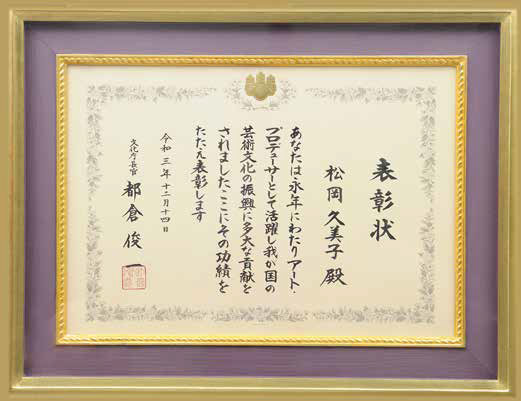 表彰状
松岡久美子殿
あなたは永年にわたりアート・
プロデューサーとして活躍し我が国の
芸術文化の振興に多大な貢献を
されましたここにその功績を
たたえ表彰します
令和三年十二月十四日
文化庁長官 都倉俊一